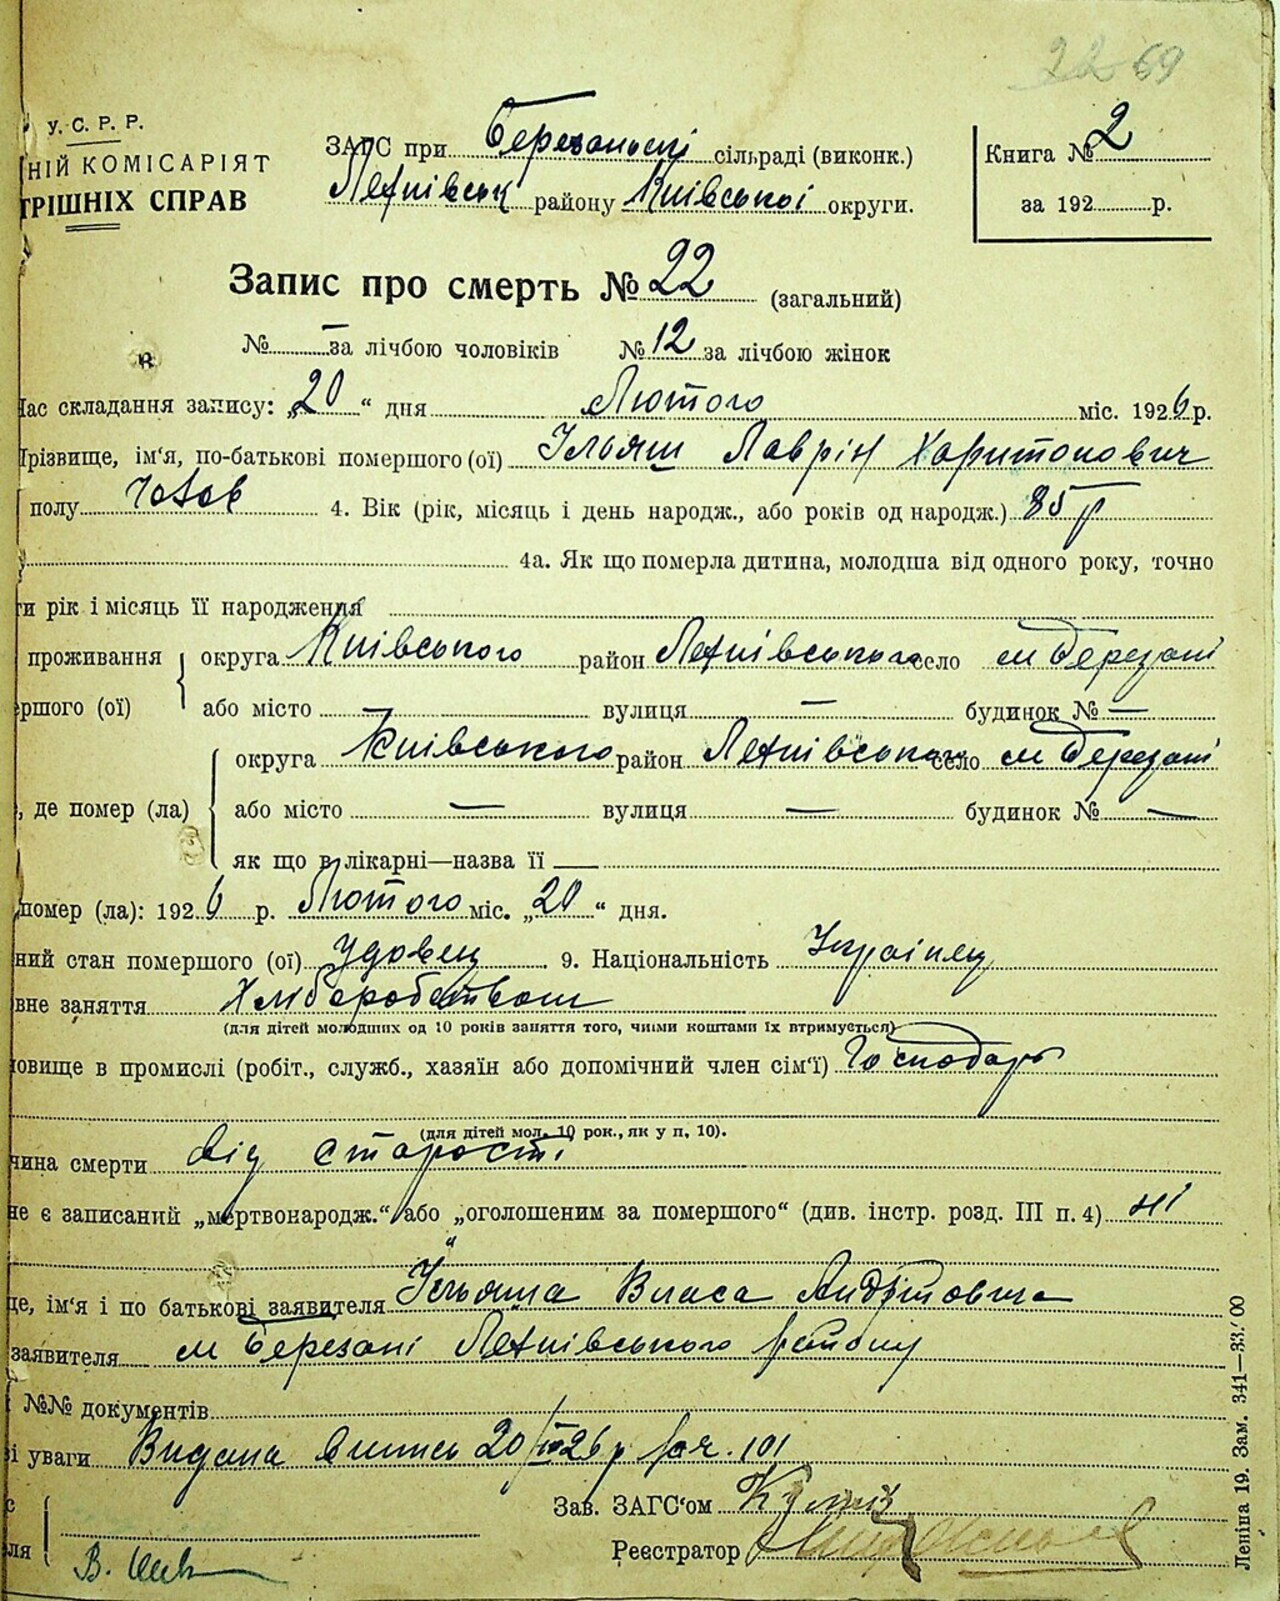 22 69
У. С. Р. Р.
НІЙ КОМІСАРІЯТ
ТРІШНІХ СПРАВ
ЗАГС при Березаньскі сільраді (виконк.)
району Київської округи.
Книга № 2
за 192 р.
Запис про смерть № 22 (загальний)
№ — за лічбою чоловіків № 12 за лічбою жінок
Час складання запису: „20“ дня Лютого міс. 1926 р.
Прізвище, ім'я, по-батькові помершого (ої) Ільяш Лаврін Харитонович
полу Чолов 4. Вік (рік, місяць і день народж., або років од народж.) 85 р
4а. Як що померла дитина, молодша від одного року, точно
ти рік і місяць її народження
проживання округа Київського район село м Березані
ршого (ої) або місто — вулиця — будинок № —
округа Київського район село м Березані
, де помер (ла) або місто — вулиця — будинок № —
як що в лікарні—назва її —
помер (ла): 1926 р. Лютого міс. „20“ дня.
ний стан помершого (ої) Удовец 9. Національність Українец
вне заняття Хліборобством
(для дітей молодших од 10 років заняття того, чиїми коштами їх втримується)
овище в промислі (робіт., служб., хазяїн або допомічний член сім'ї) Господарь
(для дітей мол. 10 рок., як у п. 10).
чина смерти від старості
не є записаний „мертвонародж.“ або „оголошеним за помершого“ (див. інстр. розд. III п. 4) ні
це, ім'я і по батькові заявителя Ільяша Власа
заявителя м Березані району
№№ документів
і уваги Видана 20/II 26 р 101
Зав. ЗАГС'ом
ля Реєстратор
Леніна 19. Зам. 341—33.